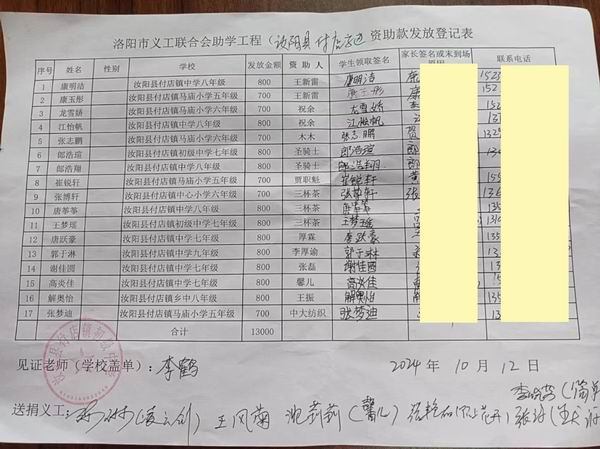 洛阳市义工联合会助学工程（汝阳县付店 资助款发放登记表
序号 姓名 性别 学校 发放金额 资助人 学生领取签名 家长签名或未到场原因 联系电话
1 康明洁 汝阳县付店镇中学八年级 800 王新雷 康明洁 152
2 康玉彤 汝阳县付店镇马庙小学五年级 700 王新雷 康玉彤 康 152
3 龙雪娇 汝阳县付店镇马庙小学六年级 700 祝余 龙雪娇 152
4 江怡帆 汝阳县付店镇中学八年级 800 祝余 江怡帆
5 张志鹏 汝阳县付店镇马庙小学六年级 700 木木 张志鹏 贺
6 郎浩瑄 汝阳县付店镇初级中学七年级 800 圣骑士 郎浩瑄
7 郎浩翔 汝阳县付店镇中学八年级 800 圣骑士 郎浩翔
8 崔锐轩 汝阳县付店镇马庙小学五年级 700 贾职魁 崔锐轩 155
9 张博轩 汝阳县付店镇中心小学六年级 700 三杯茶 张博轩 张 136
10 唐筝筝 汝阳县付店镇中学八年级 800 三杯茶 唐筝筝 135
11 王梦瑶 汝阳县付店镇初级中学七年级 800 三杯茶 王梦瑶
12 唐跃豪 汝阳县付店镇中学七年级 800 厚霖 唐跃豪 135
13 郭于淋 汝阳县付店镇中学九年级 800 李厚谕 郭于淋
14 谢佳圆 汝阳县付店镇中学七年级 800 张磊 谢佳圆 135
15 高炎佳 汝阳县付店镇中学七年级 800 馨儿 高炎佳
16 解奥怡 汝阳县付店镇乡中八年级 800 王振 解奥怡 135
17 张梦迪 汝阳县付店镇马庙小学五年级 700 中大纺织 张梦迪
合计 13000
见证老师（学校盖单）：李鹤 2024年10月12日
送捐义工： （凌云剑） 王风菊 莉莉（馨儿）